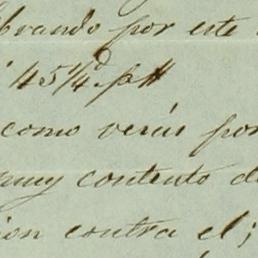 brando por este
45 1/4 d. p#
como verás por
muy contento d
ion contra el;